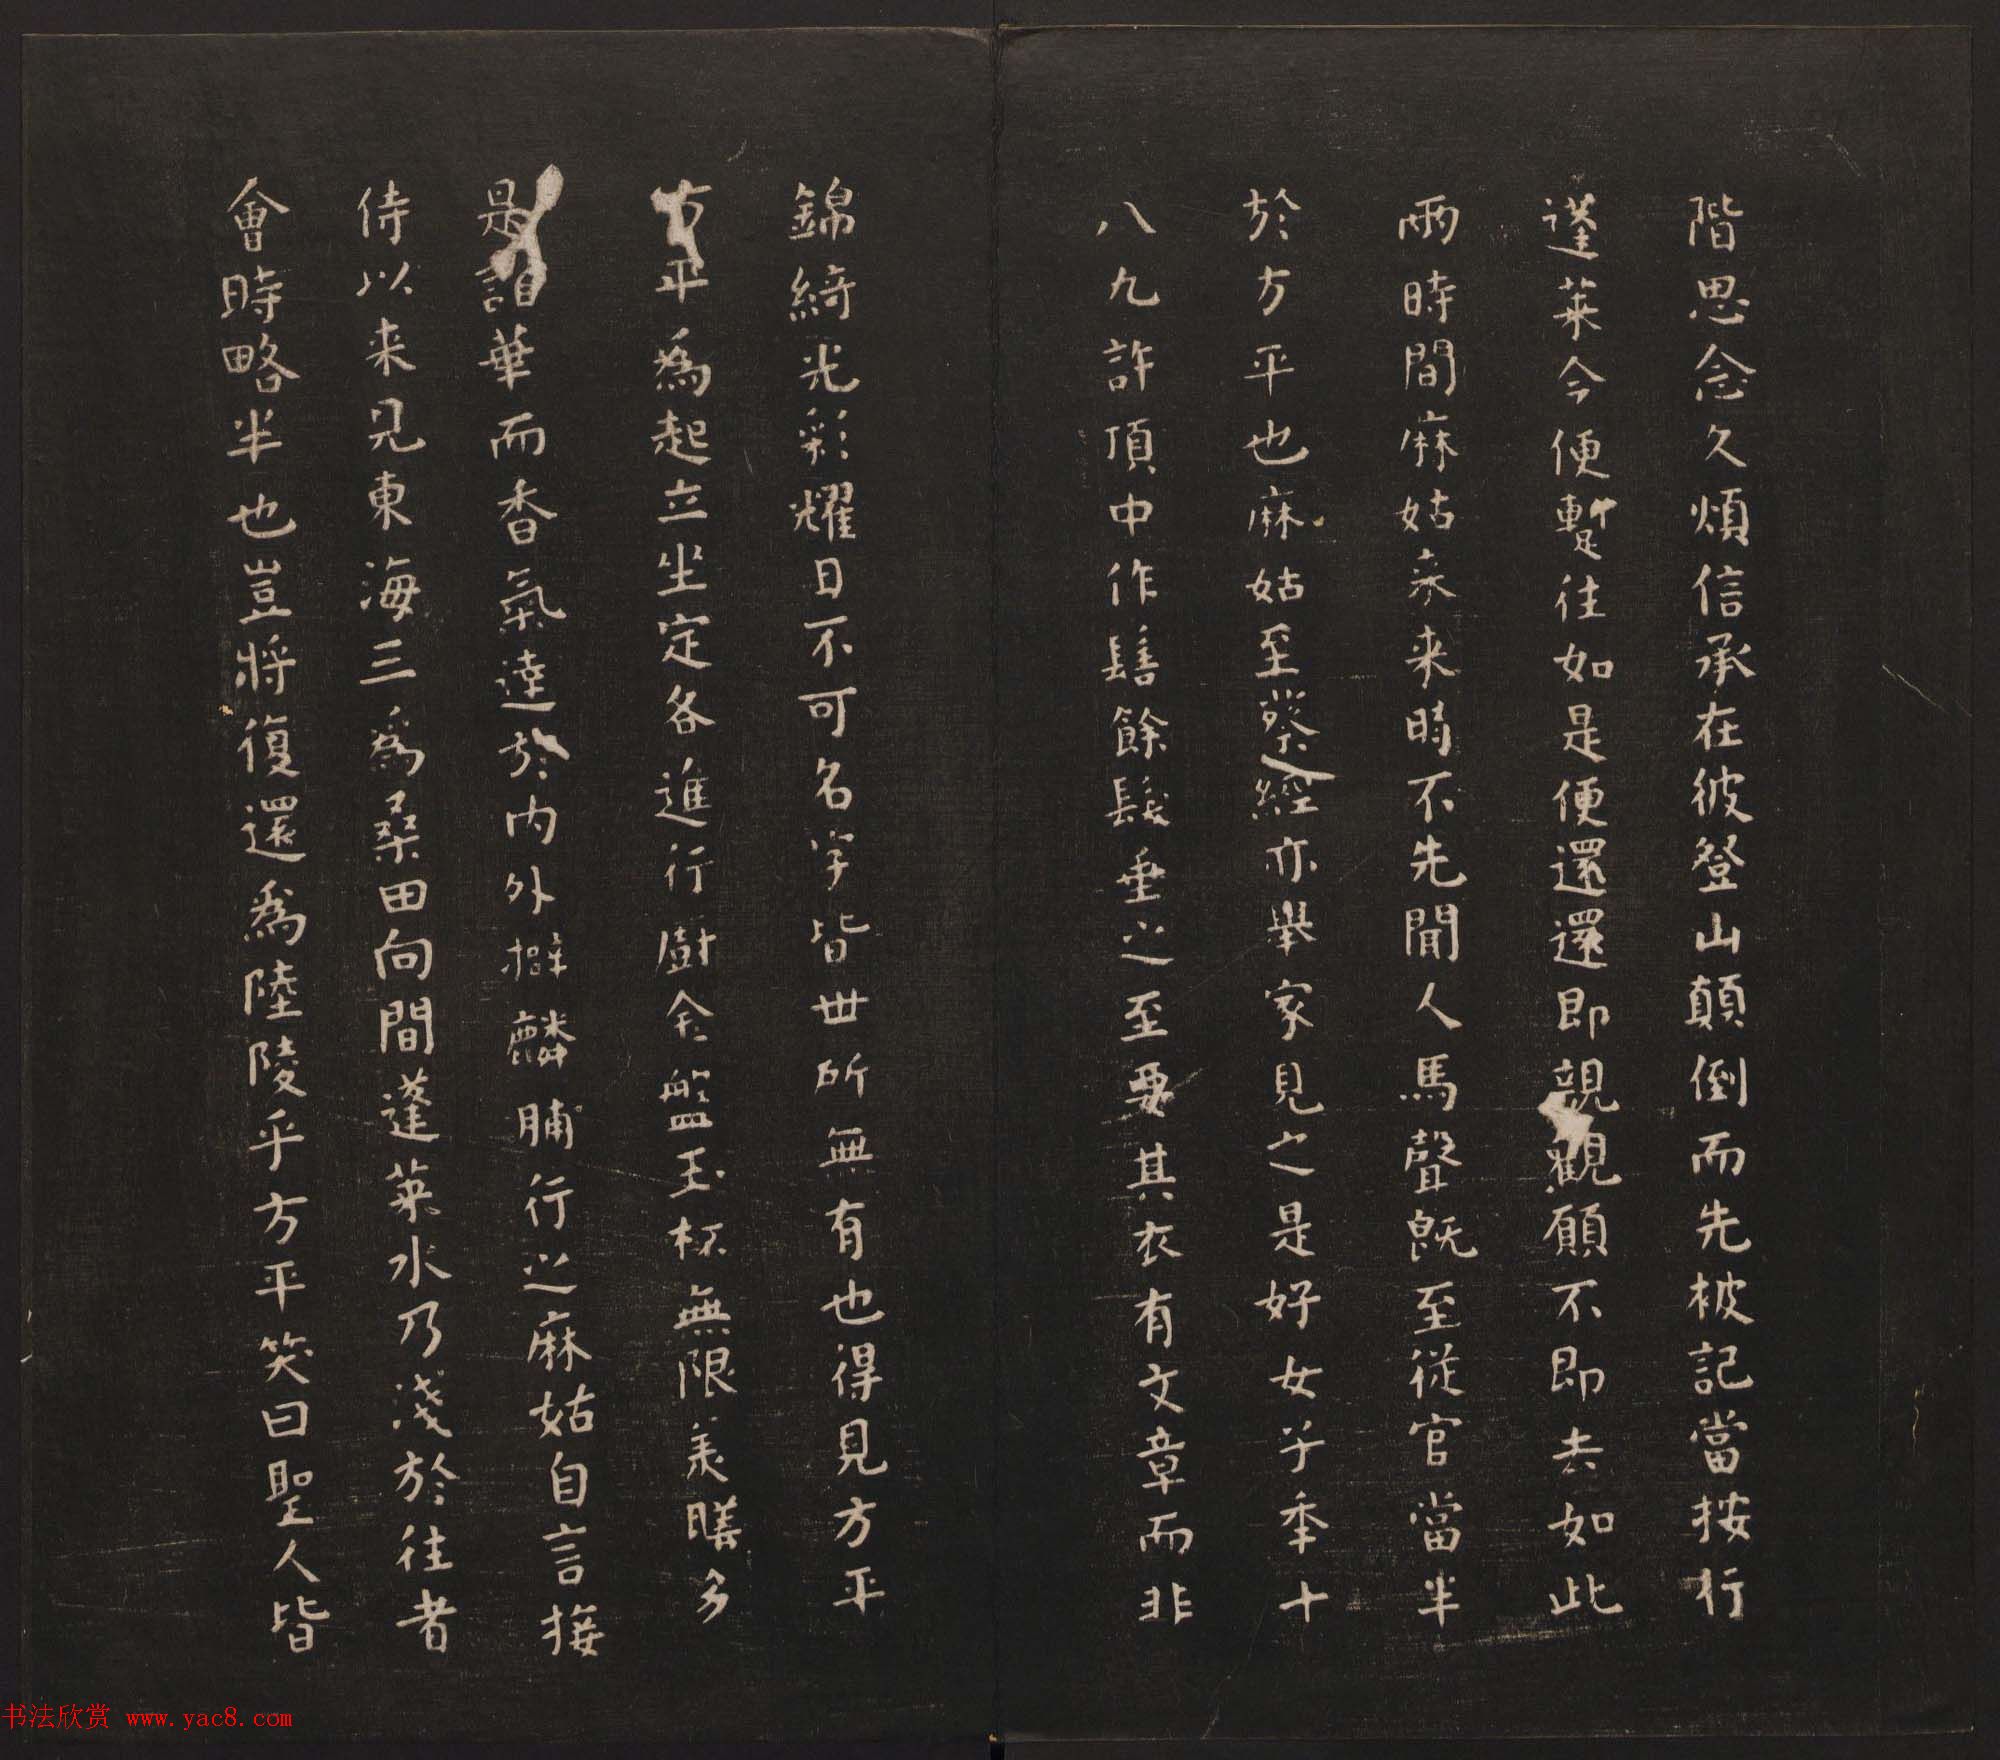 階思念久煩信承在彼登山顛倒而先被記當按行
蓬萊今便暫往如是便還還即親觀願不即去如此
兩時間麻姑來来時不先聞人馬聲既至從官當半
於方平也麻姑至蔡經亦舉家見之是好女子年十
八九許頂中作髻餘髮垂之至要其衣有文章而非
錦綺光彩耀日不可名字皆世所無有也得見方平
方平為起立坐定各進行廚金盤玉杯無限美膳多
是諸華而香氣達於内外擗麟脯行之麻姑自言接
侍以来見東海三為桑田向間蓬萊水乃淺於往者
會時略半也豈將復還為陸陵乎方平笑曰聖人皆
书法欣赏 www.yac8.com